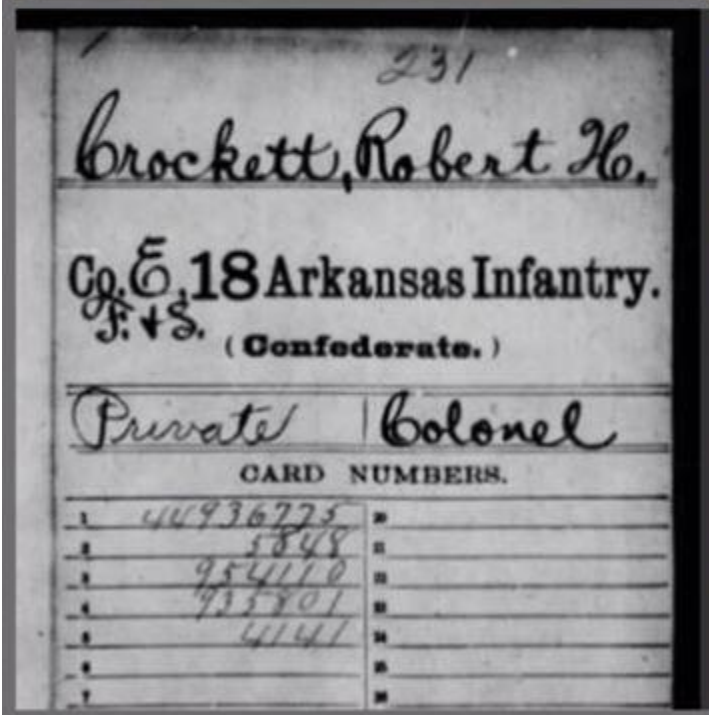 231
Crockett, Robert H.
Co. E, 18 Arkansas Infantry.
F. & S.
(Confederate.)
Private | Colonel
CARD NUMBERS.
1 44936775 10
2 5848 11
3 954110 12
4 935801 13
5 4141 14
6 15
7 16